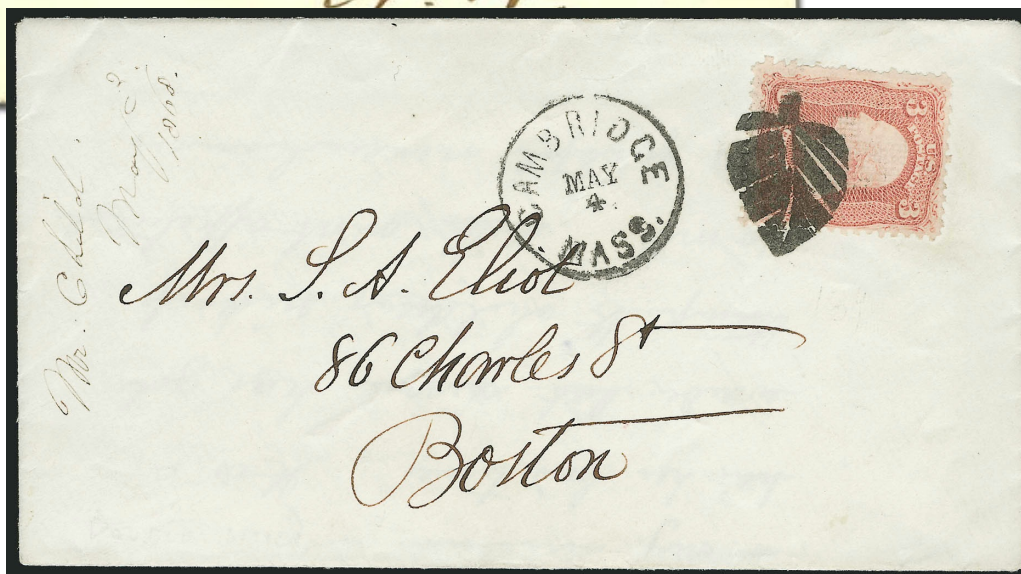 Mr. Child.
May 3.
1868.
CAMBRIDGE
MAY
4
MASS.
3 3
U.S.
Mrs. S. A. Eliot
86 Charles St
Boston